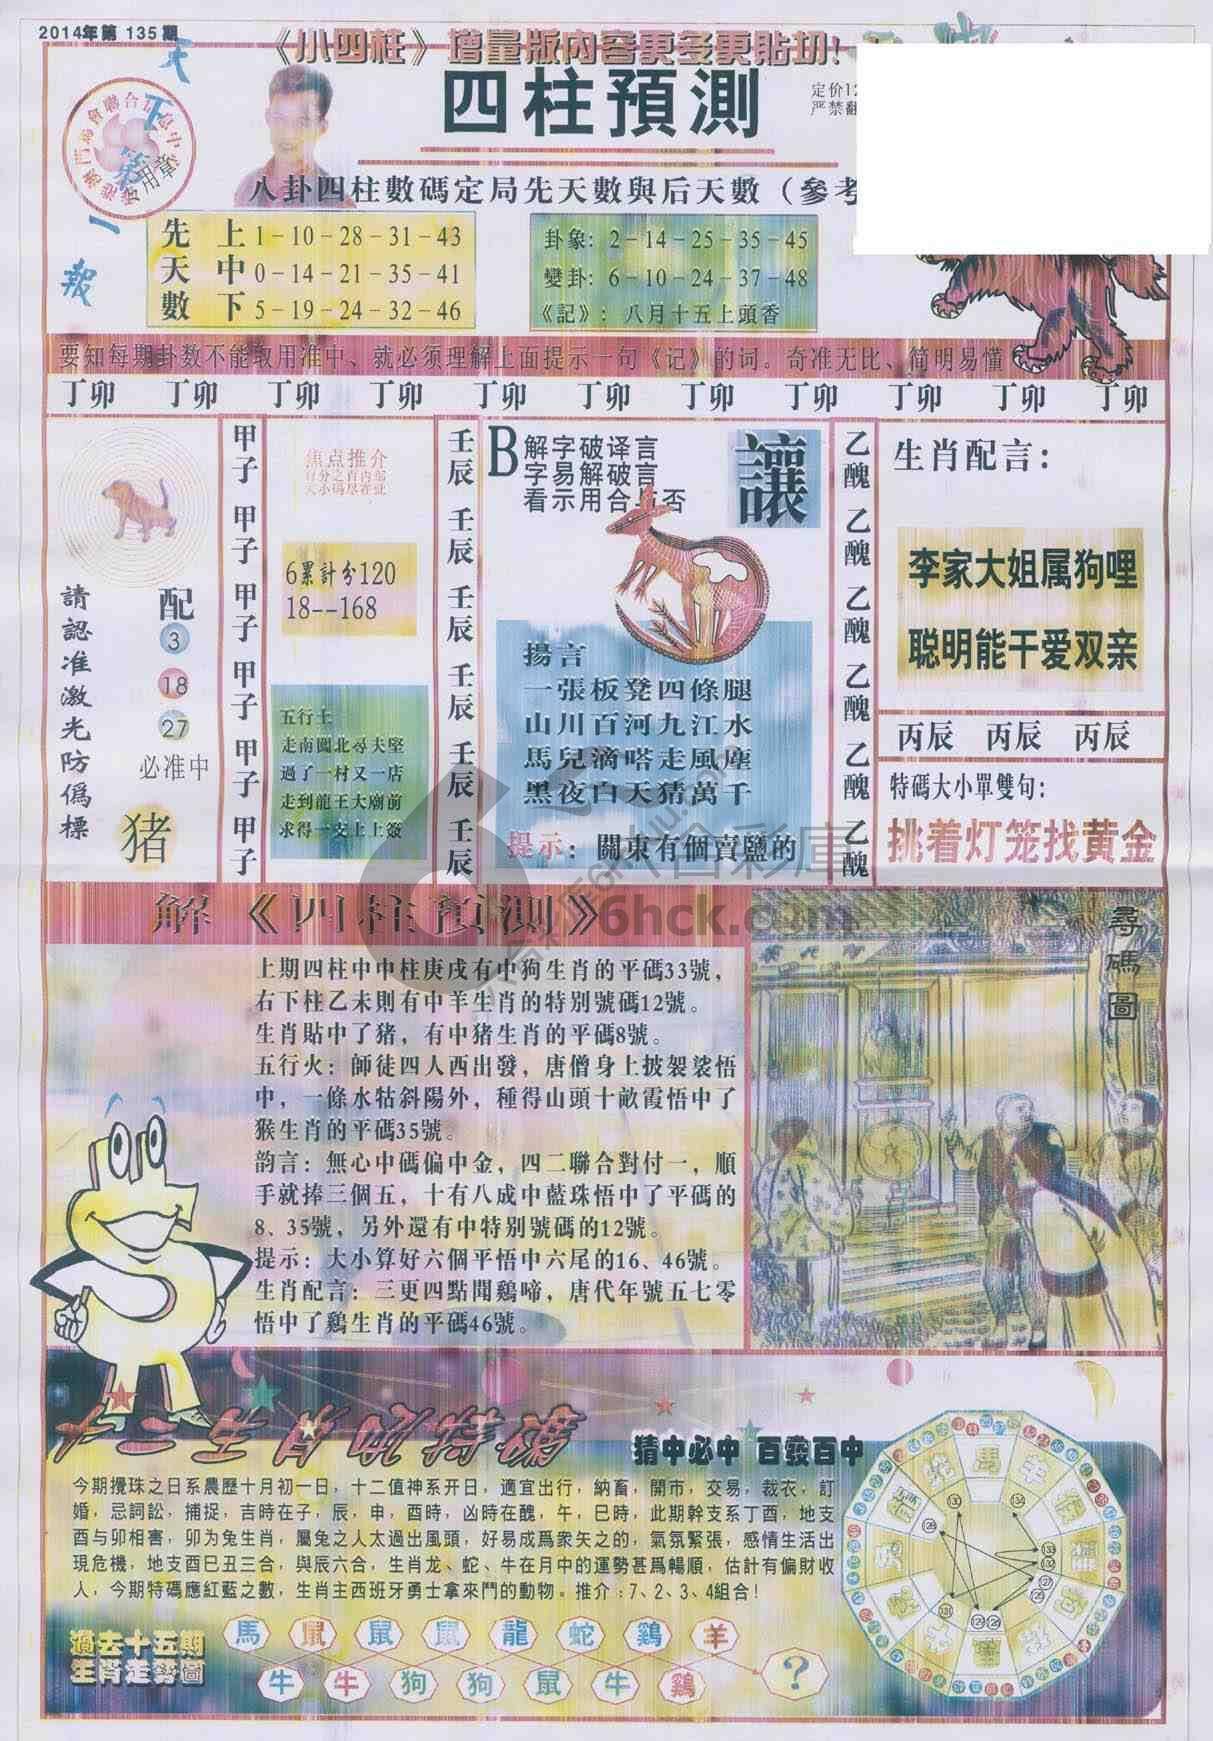 2014年第 135 期
《小四柱》增量版内容更多更貼切!
天下第一報
四柱預測
定价12
严禁翻
八卦四柱數碼定局先天數與后天數（參考
先天數
上 1-10-28-31-43
中 0-14-21-35-41
下 5-19-24-32-46
卦象: 2-14-25-35-45
變卦: 6-10-24-37-48
《記》: 八月十五上頭香
要知每期卦数不能取用准中、就必须理解上面提示一句《记》的词。奇准无比、简明易懂
丁卯 丁卯 丁卯 丁卯 丁卯 丁卯 丁卯 丁卯 丁卯 丁卯 丁卯
請認准激光防僞標
配
3
18
27
必准中
猪
甲子 甲子 甲子 甲子 甲子 甲子
焦点推介
百分之百内部
大小码尽在此
6累計分120
18--168
五行土
走南闖北尋夫堅
過了一村又一店
走到龍王大廟前
求得一支上上簽
壬辰 壬辰 壬辰 壬辰 壬辰 壬辰
B 解字破译言
字易解破言
看示用合与否
讓
揚言
一張板凳四條腿
山川百河九江水
馬兒滴嗒走風塵
黑夜白天猜萬千
提示: 關東有個賣鹽的
乙醜 乙醜 乙醜 乙醜 乙醜 乙醜
生肖配言:
李家大姐属狗哩
聪明能干爱双亲
丙辰 丙辰 丙辰
特碼大小單雙句:
挑着灯笼找黄金
解《四柱預測》
6hck.com
上期四柱中中柱庚戌有中狗生肖的平碼33號，
右下柱乙未則有中羊生肖的特别號碼12號。
生肖貼中了猪，有中猪生肖的平碼8號。
五行火: 師徒四人西出發，唐僧身上披架裟悟
中，一條水牯斜陽外，種得山頭十畝霞悟中了
猴生肖的平碼35號。
韵言: 無心中碼偏中金，四二聯合對付一，順
手就捧三個五，十有八成中藍珠悟中了平碼的
8、35號，另外還有中特别號碼的12號。
提示: 大小算好六個平悟中六尾的16、46號。
生肖配言: 三更四點聞鷄啼，唐代年號五七零
悟中了鷄生肖的平碼46號。
尋碼圖
猜中必中 百發百中
今期攪珠之日系農歷十月初一日，十二值神系开日，適宜出行，納畜，開市，交易，裁衣，訂
婚，忌詞訟，捕捉，吉時在子，辰，申，酉時，凶時在醜，午，巳時，此期幹支系丁酉，地支
酉与卯相害，卯为兔生肖，屬兔之人太過出風頭，好易成爲衆矢之的，氣氛緊張，感情生活出
現危機，地支酉巳丑三合，與辰六合，生肖龙、蛇、牛在月中的運勢甚爲暢順，估計有偏財收
人，今期特碼應紅藍之數，生肖主西班牙勇士拿來鬥的動物。推介:7、2、3、4組合!
過去十五期
生肖走勢圖
馬 鼠 鼠 鼠 龍 蛇 鷄 羊
牛 牛 狗 狗 鼠 牛 鷄 ?